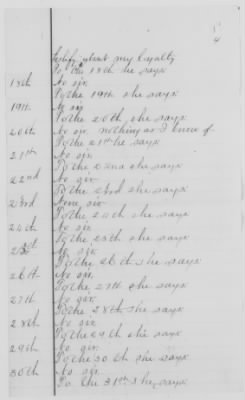 4
testify about my loyalty
To the 18th he says
18th No sir.
To the 19th she says
19th No sir
To the 20th, she says
20th No sir, nothing as I know of
To the 21st he says
21st No sir.
To the 22nd she says
22nd No sir.
To the 23rd she says
23rd None, sir
To the 24th she says
24th No sir.
To the 25th she says
25th No sir.
To the 26th she says
26th No sir.
To the 27th she says
27th No sir.
To the 28th she says
28th No sir.
To the 29th she says
29th No sir.
To the 30th she says
30th No sir.
To the 31st she says